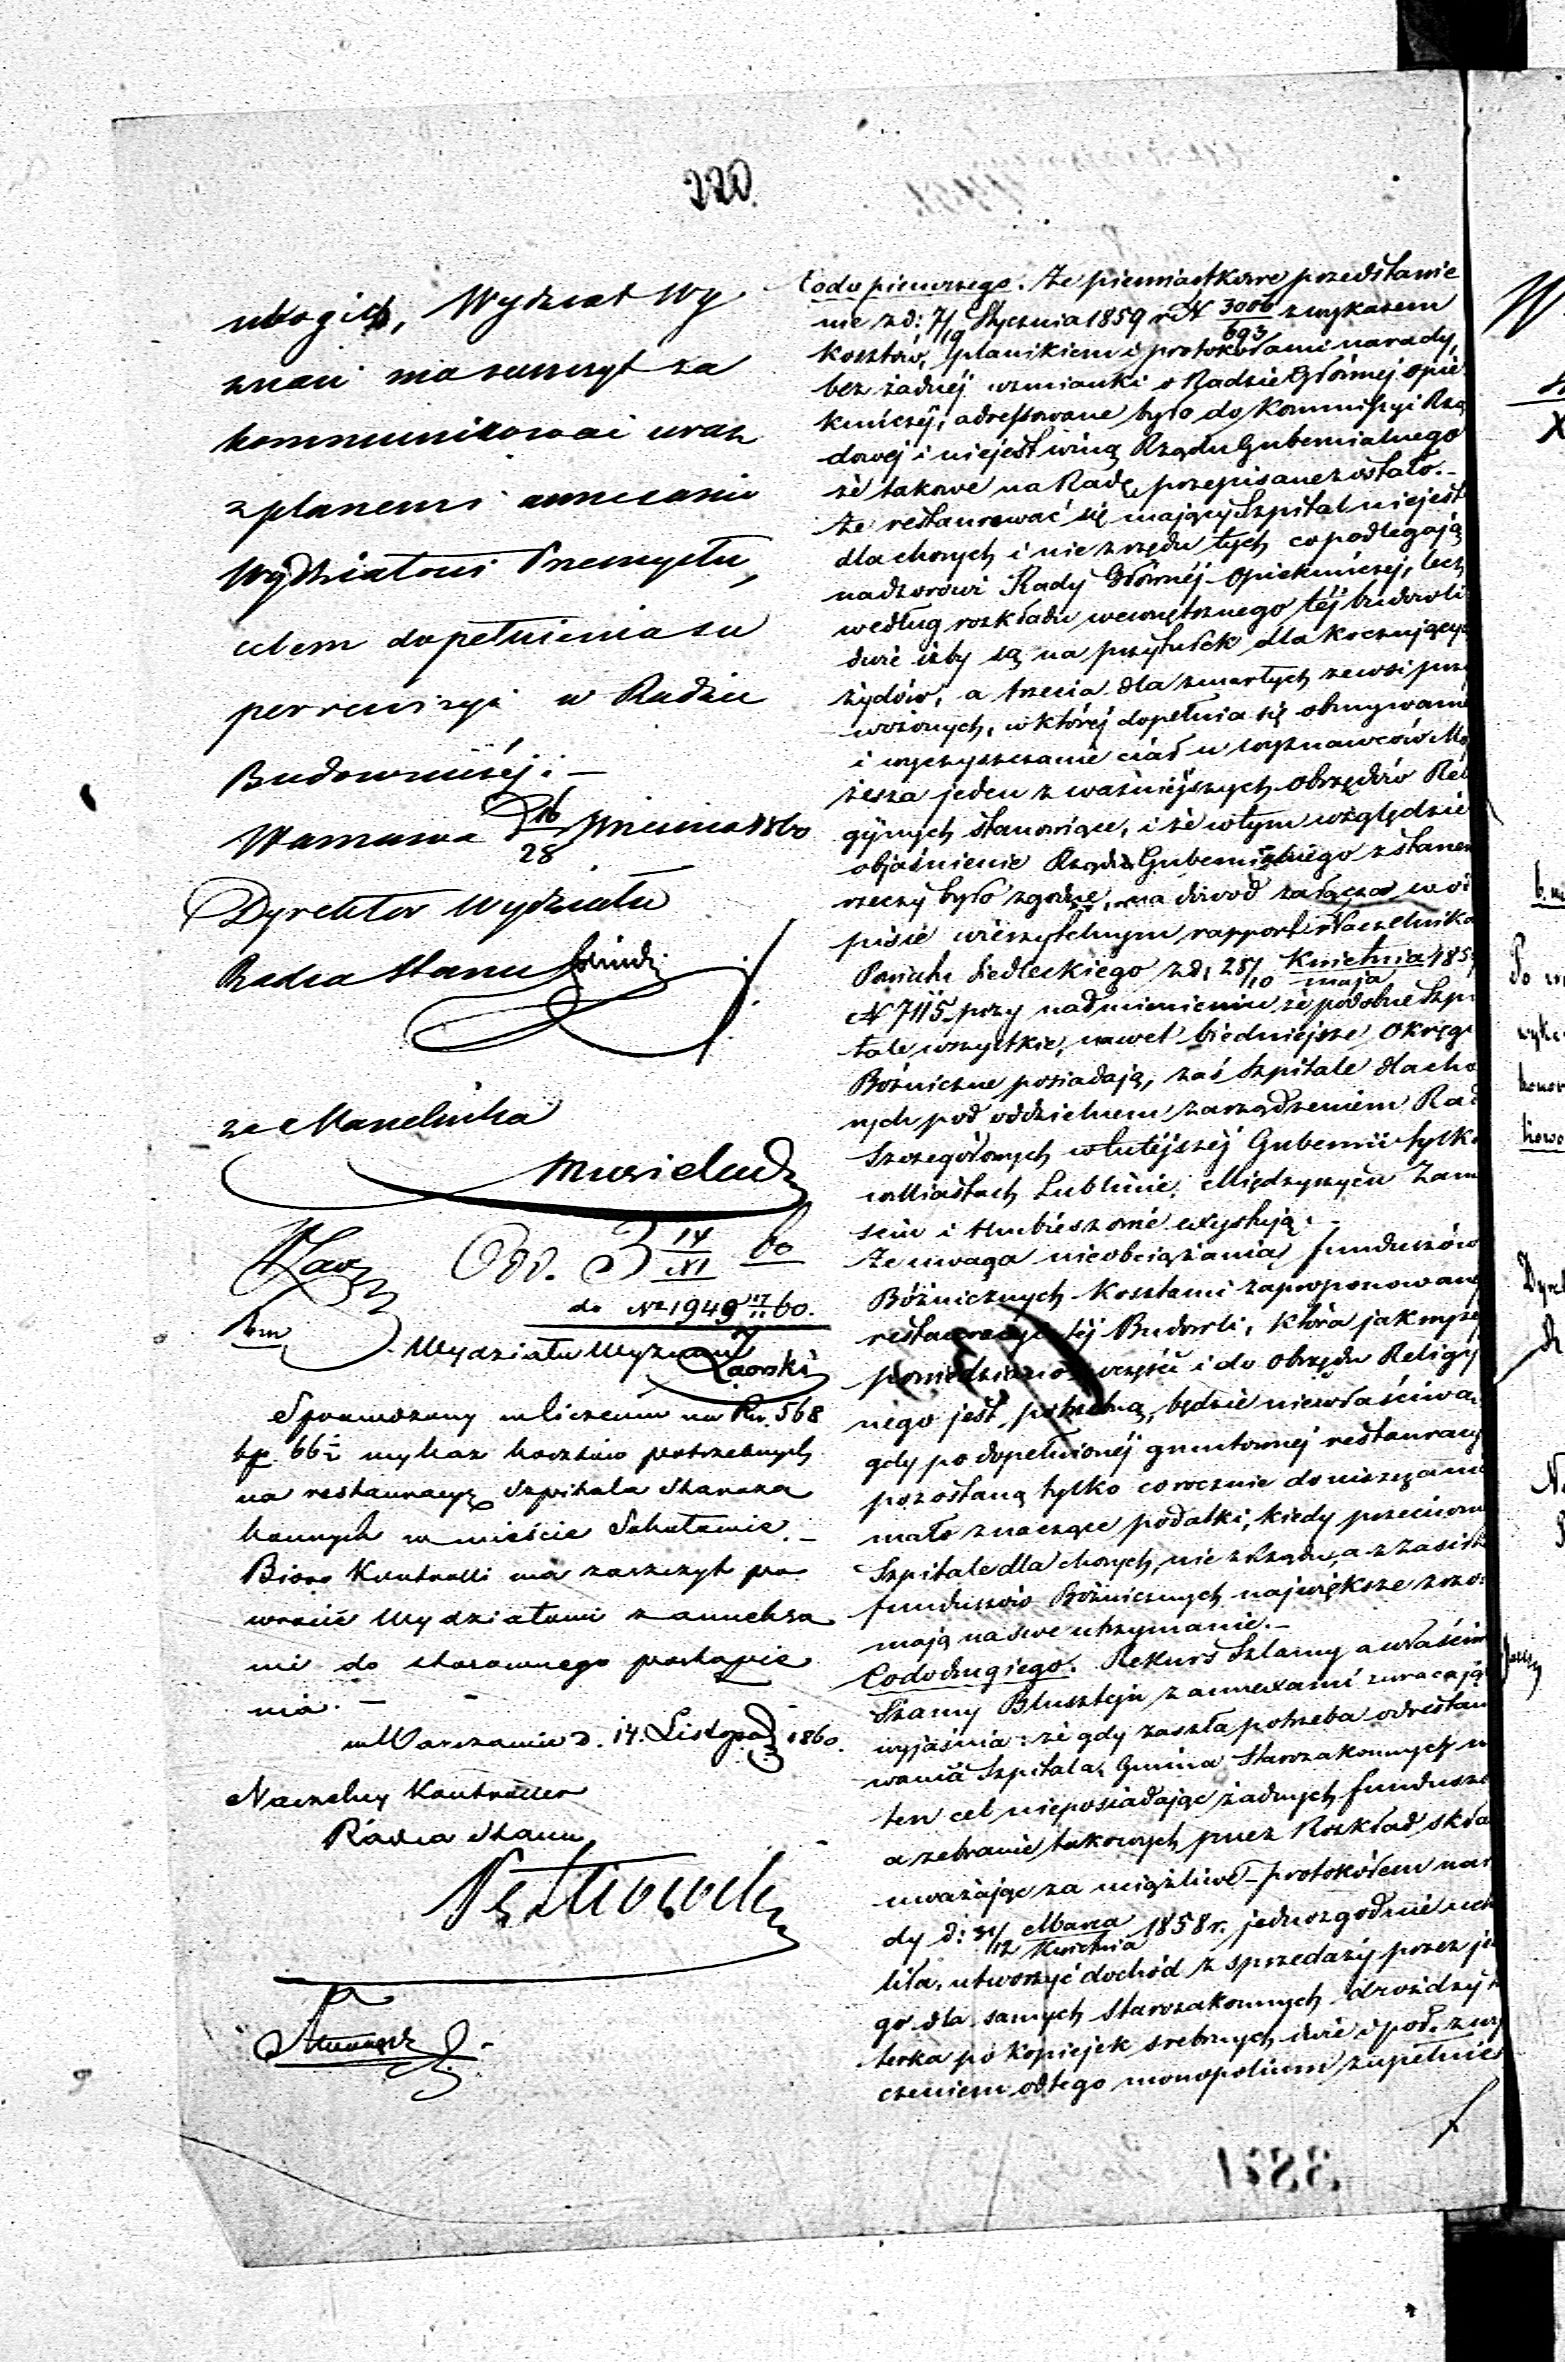 220.
ubogich, Wydział Wy
znań ma zaszczyt za
kommunikować wraz
z planem i annexami
Wydziałowi Przemysłu,
celem dopełnienia su
perrewizyi w Radzie
Budowniczéj. –
Warszawa d 16/28 Września 1860
Dyrektor Wydziału
Radca Stanu
za Naczelnika
Odd. 14/XI 60
do No 1949 17/11 60.
Wydziału Wyznań
Sprawdzony w liczeniu na Rs. 568
kp. 66 wykaz kosztów potrzebnych
na restauracyę Szpitala Staroza
konnych w mieście Sokołowie. –
Bióro Kontrolli ma zaszczyt po
wrócić Wydziałowi z annexa
mi do stosownego postąpie
nia. –
w Warszawie d. 14. Listopad 1860.
Naczelny Kontroller
Radca Stanu
Co do pierwszego. Że pierwiastkowe przedstawie
nie z d: 7/19 Stycznia 1859 r N 3006/693 z wykazem
kosztów, planikiem i protokółami narady,
bez żadnéj wzmianki o Radzie Głównéj Opie
kuńczéj, adressowane było do Kommissyi Rzą
dowéj i niejest winą Rządu Gubernialnego
że takowe na Radę przepisane zostało. –
Że restaurować się mający Szpital niejest
dla chorych i nie z rzędu tych co podlegają
nadzorowi Rady Głównéj Opiekuńczéj, lecz
według rozkładu wewnętrznego téj budowli
dwie izby są na przytułek dla koczujący
żydów, a trzecia dla zmarłych ze wsi prz
wożonych, w któréj dopełnia się obmywanie
i wyczyszczanie ciał u wyznawców Mo
żesza jeden z ważniejszych obrzędów Reli
gijnych stanowiące, i że w tym względzie
objaśnienie Rządu Gubernialnego z stanem
rzeczy było zgodne, na dowód załącza w od
pisie wierzytelnym rapport Naczelnika
Powiatu Siedleckiego z d. 28/10 Kwietnia/maja 185
N 7115 przy nadmienieniu, że podobne Szpi
tale wszystkie, nawet biedniejsze Okręgi
Bóżniczne posiadają, zaś Szpitale dla cho
rych pod oddzielnem zarządzeniem Rad
Szczegółowych w tutejszéj Gubernii tylko
w Miastach Lublinie, Międzyrzycu Zamo
ściu i Hrubieszowie exystują. –
Że uwaga nieobciążania funduszów
Bóżnicznych kosztami zaproponowanéj
restauracyi téj Budowli, która jak wyżéj
powiedziano w części i do obrzędu Religij
nego jest potrzebną, będzie niewłaściwą,
gdy po dopełnionéj gruntownéj restauracyi
pozostaną tylko corocznie do niszczania
mało znaczące podatki, kiedy przeciwnie
Szpitale dla chorych, nie z Rządu, a z zasiłk
funduszów Bóżnicznych największe źród
mają na swe utrzymanie. –
Co do drugiego. Rekurs Szlamy a właściw
Szamy Blusztejn z annexami zwracają
wyjaśnia: że gdy zaszła potrzeba odrestau
wania Szpitala, Gmina Starozakonnych n
ten cel nieposiadając żadnych funduszó
a zebranie takowych przez Rozkład skła
uważając za uciążliwe – protokółem nar
dy d: 31/12 Marca/Kwietnia 1858 r. jednozgodnie uch
liła, utworzyć dochód z sprzedaży przez je
go dla samych Starozakonnych drożdży k
terka po kopiejek srebrnych dwie i pod. z wy
czeniem od tego monopolium zupełnie